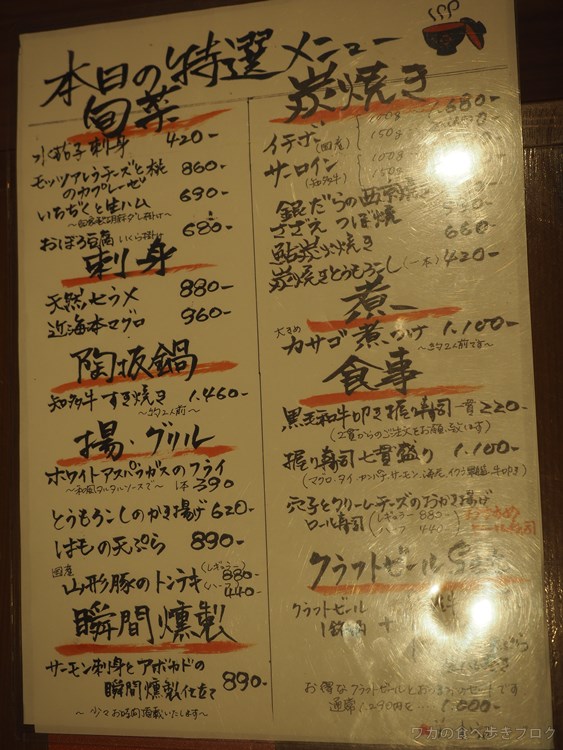 本日の特選メニュー
旬菜
水茄子刺身 420-
モッツァレラチーズと桃
のカプレーゼ 860-
いちぢくと生ハム 690-
おぼろ豆腐 いくら掛け 680-
刺身
天然ヒラメ 880-
近海本マグロ 960-
陶板鍋
知多牛すき焼き 1.460-
〜約2人前〜
揚・グリル
ホワイトアスパラガスのフライ
〜和風タルタルソースで〜 1本 390
とうもろこしのかき揚げ 620-
はもの天ぷら 890-
国産 山形豚のトンテキ (レギュラー) 880-
(ハーフ) 440-
瞬間燻製
サーモン刺身とアボカドの
瞬間燻製仕立て 890-
〜少々お時間頂戴いたします〜
炭焼き
イチボ (国産) 100g 680-
150g
サーロイン (知多牛) 100g
150g
銀だらの西京焼き
さざえつぼ焼
鮎炭火焼き 660-
炭焼きとうもろこし (一本) 420-
煮
大きめ カサゴ煮つけ 1.100-
〜約2人前です〜
食事
黒毛和牛叩き握り寿司 一貫 220-
(2貫からのご注文をお願い致します)
握り寿司七貫盛り 1.100-
穴子とクリームチーズのおかき揚げ
ロール寿司 (レギュラー 880-
(ハーフ 440-
おすすめ
ロール寿司
クラフトビール
クラフトビール
お得なクラフトビールとおつまみのセットです
通常 1.290円を
ワカの食べ歩きブログ